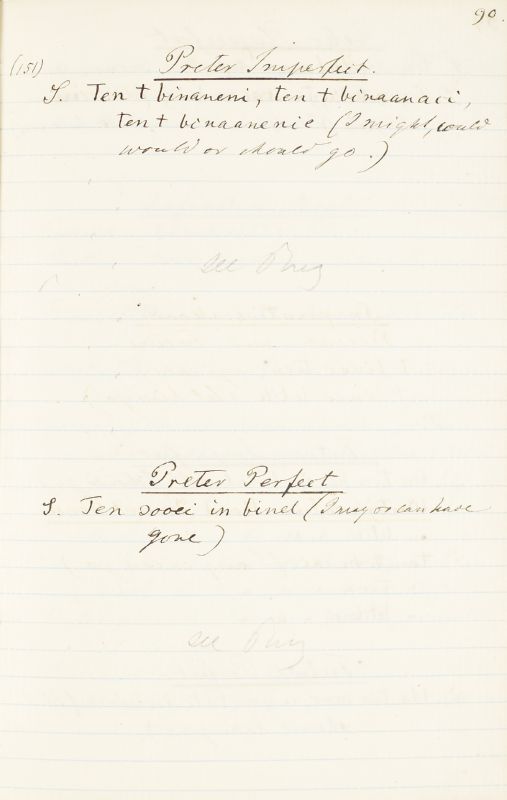 90.
(151) Preter Imperfect.
S. Ten t binaneni, ten t binaanaci,
ten t binaanenie (I might, could
would or should go.)
see
Preter Perfect
S. Ten sooei in binel (I may or can have
gone)
see